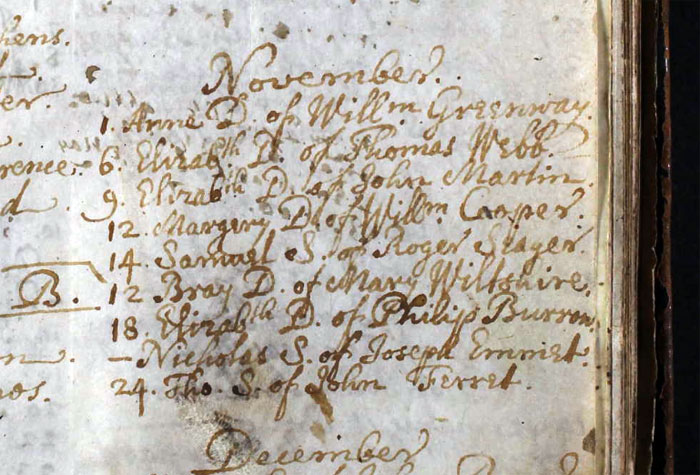 hens.
November.
er.
1. Anne D. of Willm Greenway.
rence. 6. Elizabth D. of Thomas Webb
d 9. Elizabth D. of John Martin.
12. Margery D. of Willm Cooper.
14. Samuel S. of Roger Seager.
B. 12 Bray D. of Mary Wiltshire.
18. Elizabth D. of Philip Burrow
n. - Nicholas S. of Joseph Emmet.
nos. 24. Tho. S. of John Ferret.
December